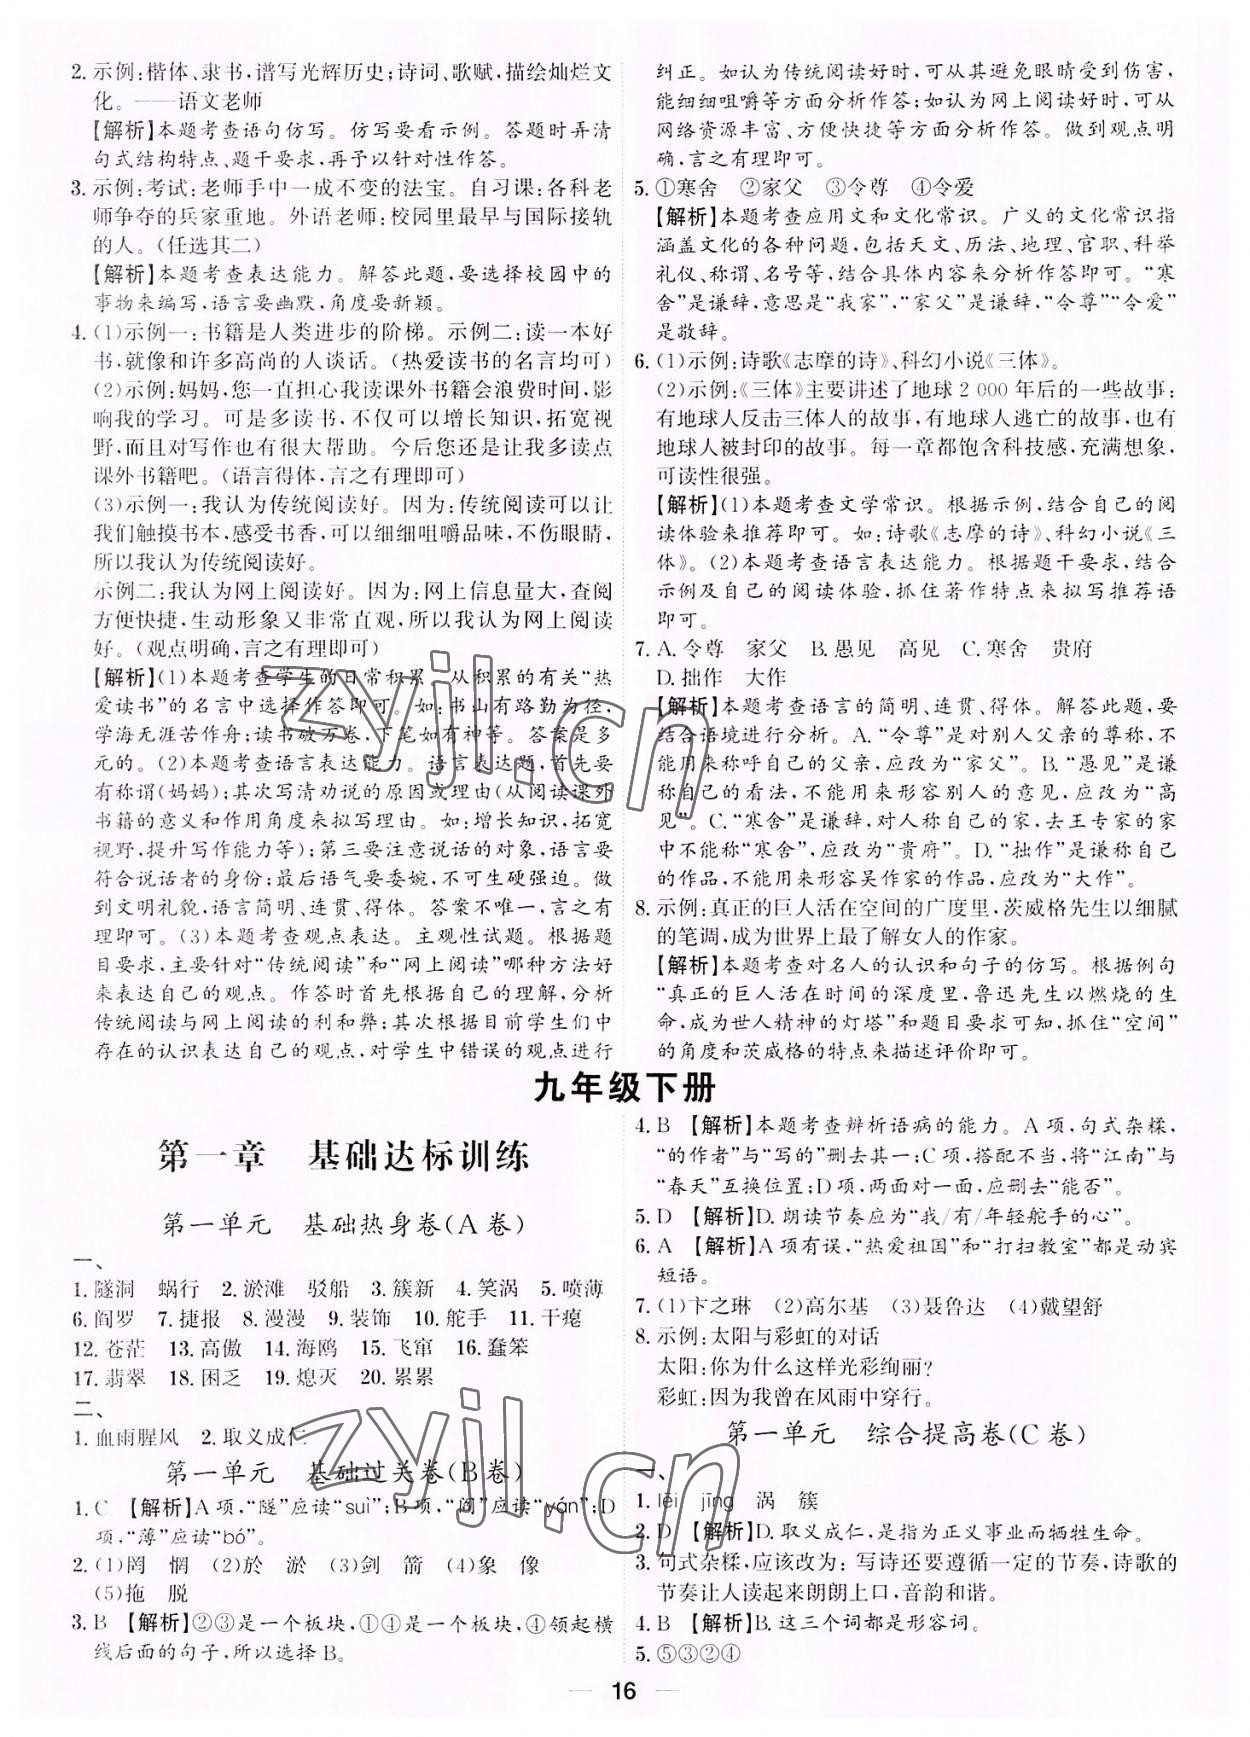 2. 示例:楷体、隶书,谱写光辉历史;诗词、歌赋,描绘灿烂文
化。——语文老师
【解析】本题考查语句仿写。仿写要看示例。答题时弄清
句式结构特点、题干要求,再予以针对性作答。
3. 示例:考试:老师手中一成不变的法宝。自习课:各科老
师争夺的兵家重地。外语老师:校园里最早与国际接轨
的人。(任选其二)
【解析】本题考查表达能力。解答此题,要选择校园中的
事物来编写,语言要幽默,角度要新颖。
4. (1)示例一:书籍是人类进步的阶梯。示例二:读一本好
书,就像和许多高尚的人谈话。(热爱读书的名言均可)
(2)示例:妈妈,您一直担心我读课外书籍会浪费时间,影
响我的学习。可是多读书,不仅可以增长知识,拓宽视
野,而且对写作也有很大帮助。今后您还是让我多读点
课外书籍吧。(语言得体,言之有理即可)
(3)示例一:我认为传统阅读好。因为:传统阅读可以让
我们触摸书本,感受书香,可以细细咀嚼品味,不伤眼睛,
所以我认为传统阅读好。
示例二:我认为网上阅读好。因为:网上信息量大,查阅
方便快捷,生动形象又非常直观,所以我认为网上阅读
好。(观点明确,言之有理即可)
【解析】(1)本题考查学生的日常积累。从积累的有关“热
爱读书”的名言中选择作答即可。如:书山有路勤为径,
学海无涯苦作舟;读书破万卷,下笔如有神等。答案是多
元的。(2)本题考查语言表达能力。语言表达题,首先要
有称谓(妈妈);其次写清劝说的原因或理由(从阅读课外
书籍的意义和作用角度来拟写理由。如:增长知识,拓宽
视野,提升写作能力等);第三要注意说话的对象,语言要
符合说话者的身份;最后语气要委婉,不可生硬强迫。做
到文明礼貌,语言简明、连贯、得体。答案不唯一,言之有
理即可。(3)本题考查观点表达。主观性试题。根据题
目要求,主要针对“传统阅读”和“网上阅读”哪种方法好
来表达自己的观点。作答时首先根据自己的理解,分析
传统阅读与网上阅读的利和弊;其次根据目前学生们中
存在的认识表达自己的观点,对学生中错误的观点进行
纠正。如认为传统阅读好时,可从其避免眼睛受到伤害,
能细细咀嚼等方面分析作答;如认为网上阅读好时,可从
网络资源丰富、方便快捷等方面分析作答。做到观点明
确,言之有理即可。
5. ①寒舍 ②家父 ③令尊 ④令爱
【解析】本题考查应用文和文化常识。广义的文化常识指
涵盖文化的各种问题,包括天文、历法、地理、官职、科举
礼仪、称谓、名号等,结合具体内容来分析作答即可。“寒
舍”是谦辞,意思是“我家”,“家父”是谦辞,“令尊”“令爱”
是敬辞。
6. (1)示例:诗歌《志摩的诗》、科幻小说《三体》。
(2)示例:《三体》主要讲述了地球2 000年后的一些故事:
有地球人反击三体人的故事,有地球人逃亡的故事,也有
地球人被封印的故事。每一章都饱含科技感,充满想象,
可读性很强。
【解析】(1)本题考查文学常识。根据示例,结合自己的阅
读体验来推荐即可。如:诗歌《志摩的诗》、科幻小说《三
体》。(2)本题考查语言表达能力。根据题干要求,结合
示例及自己的阅读体验,抓住著作特点来拟写推荐语
即可。
7. A. 令尊 家父 B. 愚见 高见 C. 寒舍 贵府
D. 拙作 大作
【解析】本题考查语言的简明、连贯、得体。解答此题,要
结合语境进行分析。A.“令尊”是对别人父亲的尊称,不
能用来称呼自己的父亲,应改为“家父”。B.“愚见”是谦
称自己的看法,不能用来形容别人的意见,应改为“高
见”。C.“寒舍”是谦辞,对人称自己的家,去王专家的家
中不能称“寒舍”,应改为“贵府”。D.“拙作”是谦称自己
的作品,不能用来形容吴作家的作品,应改为“大作”。
8. 示例:真正的巨人活在空间的广度里,茨威格先生以细腻
的笔调,成为世界上最了解女人的作家。
【解析】本题考查对名人的认识和句子的仿写。根据例句
“真正的巨人活在时间的深度里,鲁迅先生以燃烧的生
命,成为世人精神的灯塔”和题目要求可知,抓住“空间”
的角度和茨威格的特点来描述评价即可。
九年级下册
第一章 基础达标训练
第一单元 基础热身卷(A卷)
一、
1. 隧洞 蜗行 2. 淤滩 驳船 3. 簇新 4. 笑涡 5. 喷薄
6. 阎罗 7. 捷报 8. 漫漫 9. 装饰 10. 舵手 11. 干瘪
12. 苍茫 13. 高傲 14. 海鸥 15. 飞窜 16. 蠢笨
17. 翡翠 18. 困乏 19. 熄灭 20. 累累
二、
1. 血雨腥风 2. 取义成仁
第一单元 基础过关卷(B卷)
1. C 【解析】A项,“隧”应读“suì”;B项,“阎”应读“yán”;D
项,“薄”应读“bó”。
2. (1)罔 惘 (2)於 淤 (3)剑 箭 (4)象 像
(5)拖 脱
3. B 【解析】②③是一个板块,①④是一个板块,④领起横
线后面的句子,所以选择B。
4. B 【解析】本题考查辨析语病的能力。A项,句式杂糅,
“的作者”与“写的”删去其一;C项,搭配不当,将“江南”与
“春天”互换位置;D项,两面对一面,应删去“能否”。
5. D 【解析】D. 朗读节奏应为“我/有/年轻舵手的心”。
6. A 【解析】A项有误,“热爱祖国”和“打扫教室”都是动宾
短语。
7. (1)卞之琳 (2)高尔基 (3)聂鲁达 (4)戴望舒
8. 示例:太阳与彩虹的对话
太阳:你为什么这样光彩绚丽?
彩虹:因为我曾在风雨中穿行。
第一单元 综合提高卷(C卷)
一、
1. lěi jīng 涡 簇
2. D 【解析】D. 取义成仁:为正义事业而牺牲生命。
3. 句式杂糅,应该改为:写诗还要遵循一定的节奏,诗歌的
节奏让人读起来朗朗上口,音韵和谐。
4. B 【解析】B. 这三个词都是形容词。
5. ⑤③②④
16
zyjl.cn
zyjl.cn